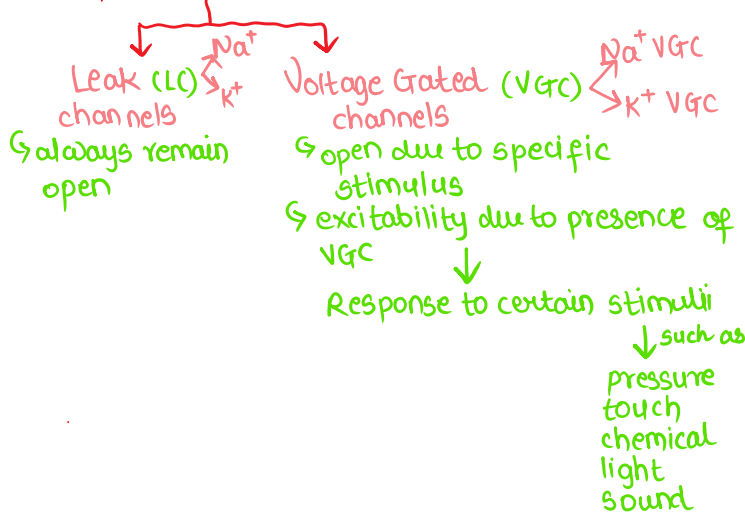 Na⁺
Leak (LC)
K⁺
channels
always remain
open
Na⁺ VGC
Voltage Gated (VGC)
K⁺ VGC
channels
open due to specific
stimulus
excitability due to presence of
VGC
Response to certain stimulii
such as
pressure
touch
chemical
light
sound